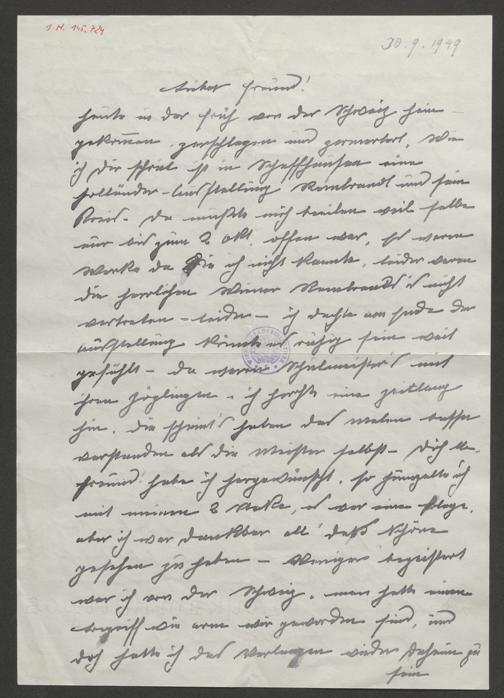 I.N. 145.724
30.9.1949
Lieber Freund!
heute in der früh von der Schweiz heim
gekommen, zerschlagen und zermartert. Wie
ich Dir schrieb ist in Schaffhausen eine
Holländer-Ausstellung Rembrandt und sein
Kreis. Da mußte mich beeilen weil selbe
nur bis zum 2 Okt. offen war, es waren
Werke da die ich nicht kannte, leider waren
die herrlichen Wiener Rembrandt's nicht
vertreten - leider - ich dachte am Ende der
Ausstellung könnte es ruhig sein weit
gefehlt - da waren Schulmeister's mit
ihren Zöglingen. ich horchte eine Zeitlang
hin, die scheint's haben das malen besser
verstanden als die Meister selbst - Dich
Freund habe ich hergewünscht. so ich
mit meinen 2 Stöcke, es war eine Plage.
aber ich war dankbar all' daß Schöne
gesehen zu haben - Weniger begeistert
war ich von der Schweiz, man hatte einen
Begriff wie arm wir geworden sind, und
doch hatte ich das Verlangen wieder daheim zu
sein